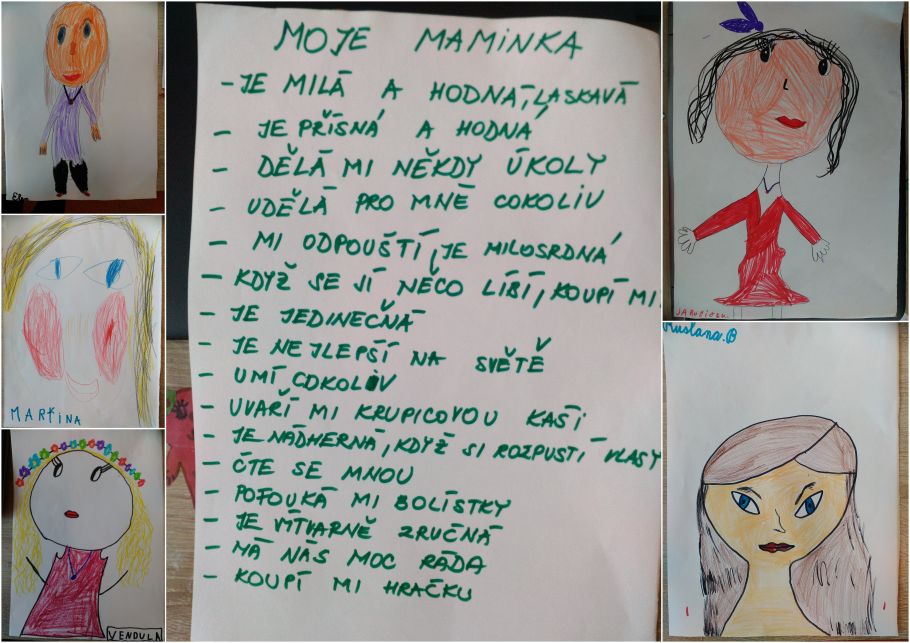 MOJE MAMINKA
- JE MILÁ A HODNÁ, LASKAVÁ
- JE PŘÍSNÁ A HODNÁ
- DĚLÁ MI NĚKDY ÚKOLY
- UDĚLÁ PRO MNĚ COKOLIV
- MI ODPOUŠTÍ, JE MILOSRDNÁ
- KDYŽ SE JÍ NĚCO LÍBÍ, KOUPÍ MI
- JE JEDINEČNÁ
- JE NEJLEPŠÍ NA SVĚTĚ
- UMÍ COKOLIV
- UVAŘÍ MI KRUPICOVOU KAŠI
- JE NÁDHERNÁ, KDYŽ SI ROZPUSTÍ VLASY
- ČTE SE MNOU
- POFOUKÁ MI BOLÍSTKY
- JE VÝTVARNĚ ZRUČNÁ
- MÁ NÁS MOC RÁDA
- KOUPÍ MI HRAČKU
MARTINA
VENDULA
Ruslana.B